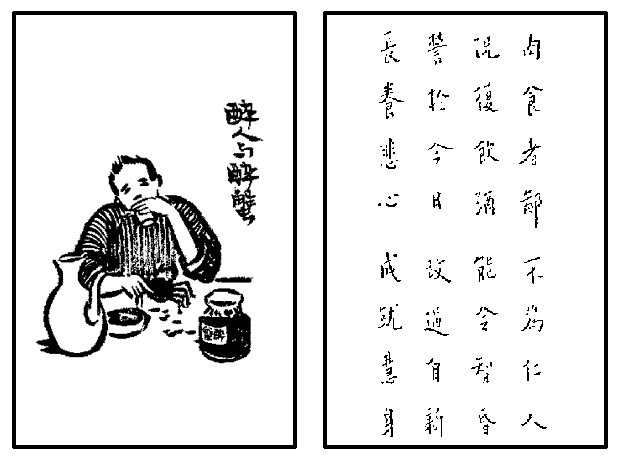 醉人与醉蟹
醉蟹
肉食者鄙 不為仁人
況復飲酒 能令智昏
誓於今日 改過自新
長養悲心 成就慧身